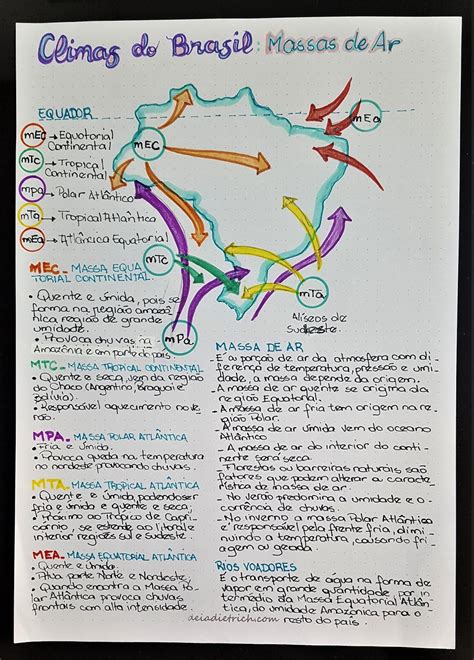 Climas do Brasil: Massas de Ar
EQUADOR
mEC → Equatorial
Continental
mTc → Tropical
Continental
mpa → Polar Atlântico
mTa → Tropical Atlântica
mEa → Atlântica Equatorial
mEC
mEa
mTc
mPa
mTa
Alíseos de
Sudeste.
MEC - MASSA EQUA
TORIAL CONTINENTAL
• Quente e úmida, pois se
forma na região amazô
nica, região de grande
umidade.
• Provoca chuvas na
Amazônia e em parte do país.
MTC - MASSA TROPICAL CONTINENTAL
• Quente e seca, vem da região
do Chaco (Argentina,
Bolívia).
• Responsável aquecimento no ve
rão.
MPA - MASSA POLAR ATLÂNTICA
• Fria e úmida.
• Provoca queda na temperatura
no nordeste provocando chuvas.
MTA - MASSA TROPICAL ATLÂNTICA
• Quente e úmida, podendo ser
fria e úmida e quente e seca;
• Próximo ao Trópico de Capri
córnio, se estende ao litoral e
interior regiões sul e sudeste.
MEA - MASSA EQUATORIAL ATLÂNTICA
• Quente e úmida.
• Atua parte Norte e Nordeste,
• Quando encontra a Massa Po
lar Atlântica provoca chuvas
frontais com alta intensidade.
MASSA DE AR
- É a porção de ar da atmosfera com di
ferença de temperatura, pressão e umi
dade, a massa depende da origem.
- A massa de ar quente se origina da
região Equatorial.
- A massa de ar fria tem origem na re
gião Polar.
- A massa de ar úmida vem do oceano
Atlântico
- A massa de ar do interior do conti
nente será seca.
- Florestas ou barreiras naturais são
fatores que podem alterar a caracte
rística da massa de ar.
- No verão predomina a umidade e o
corrência de chuvas.
- No inverno a massa Polar Atlântica
é responsável pela frente fria, dimi
nuindo a temperatura, causando fri
agem ou geada.
RIOS VOADORES
É o transporte de água na forma de
vapor em grande quantidade, por in
termédio da Massa Equatorial Atlân
tica, da umidade Amazônica para o
resto do país.
deiadietrich.com